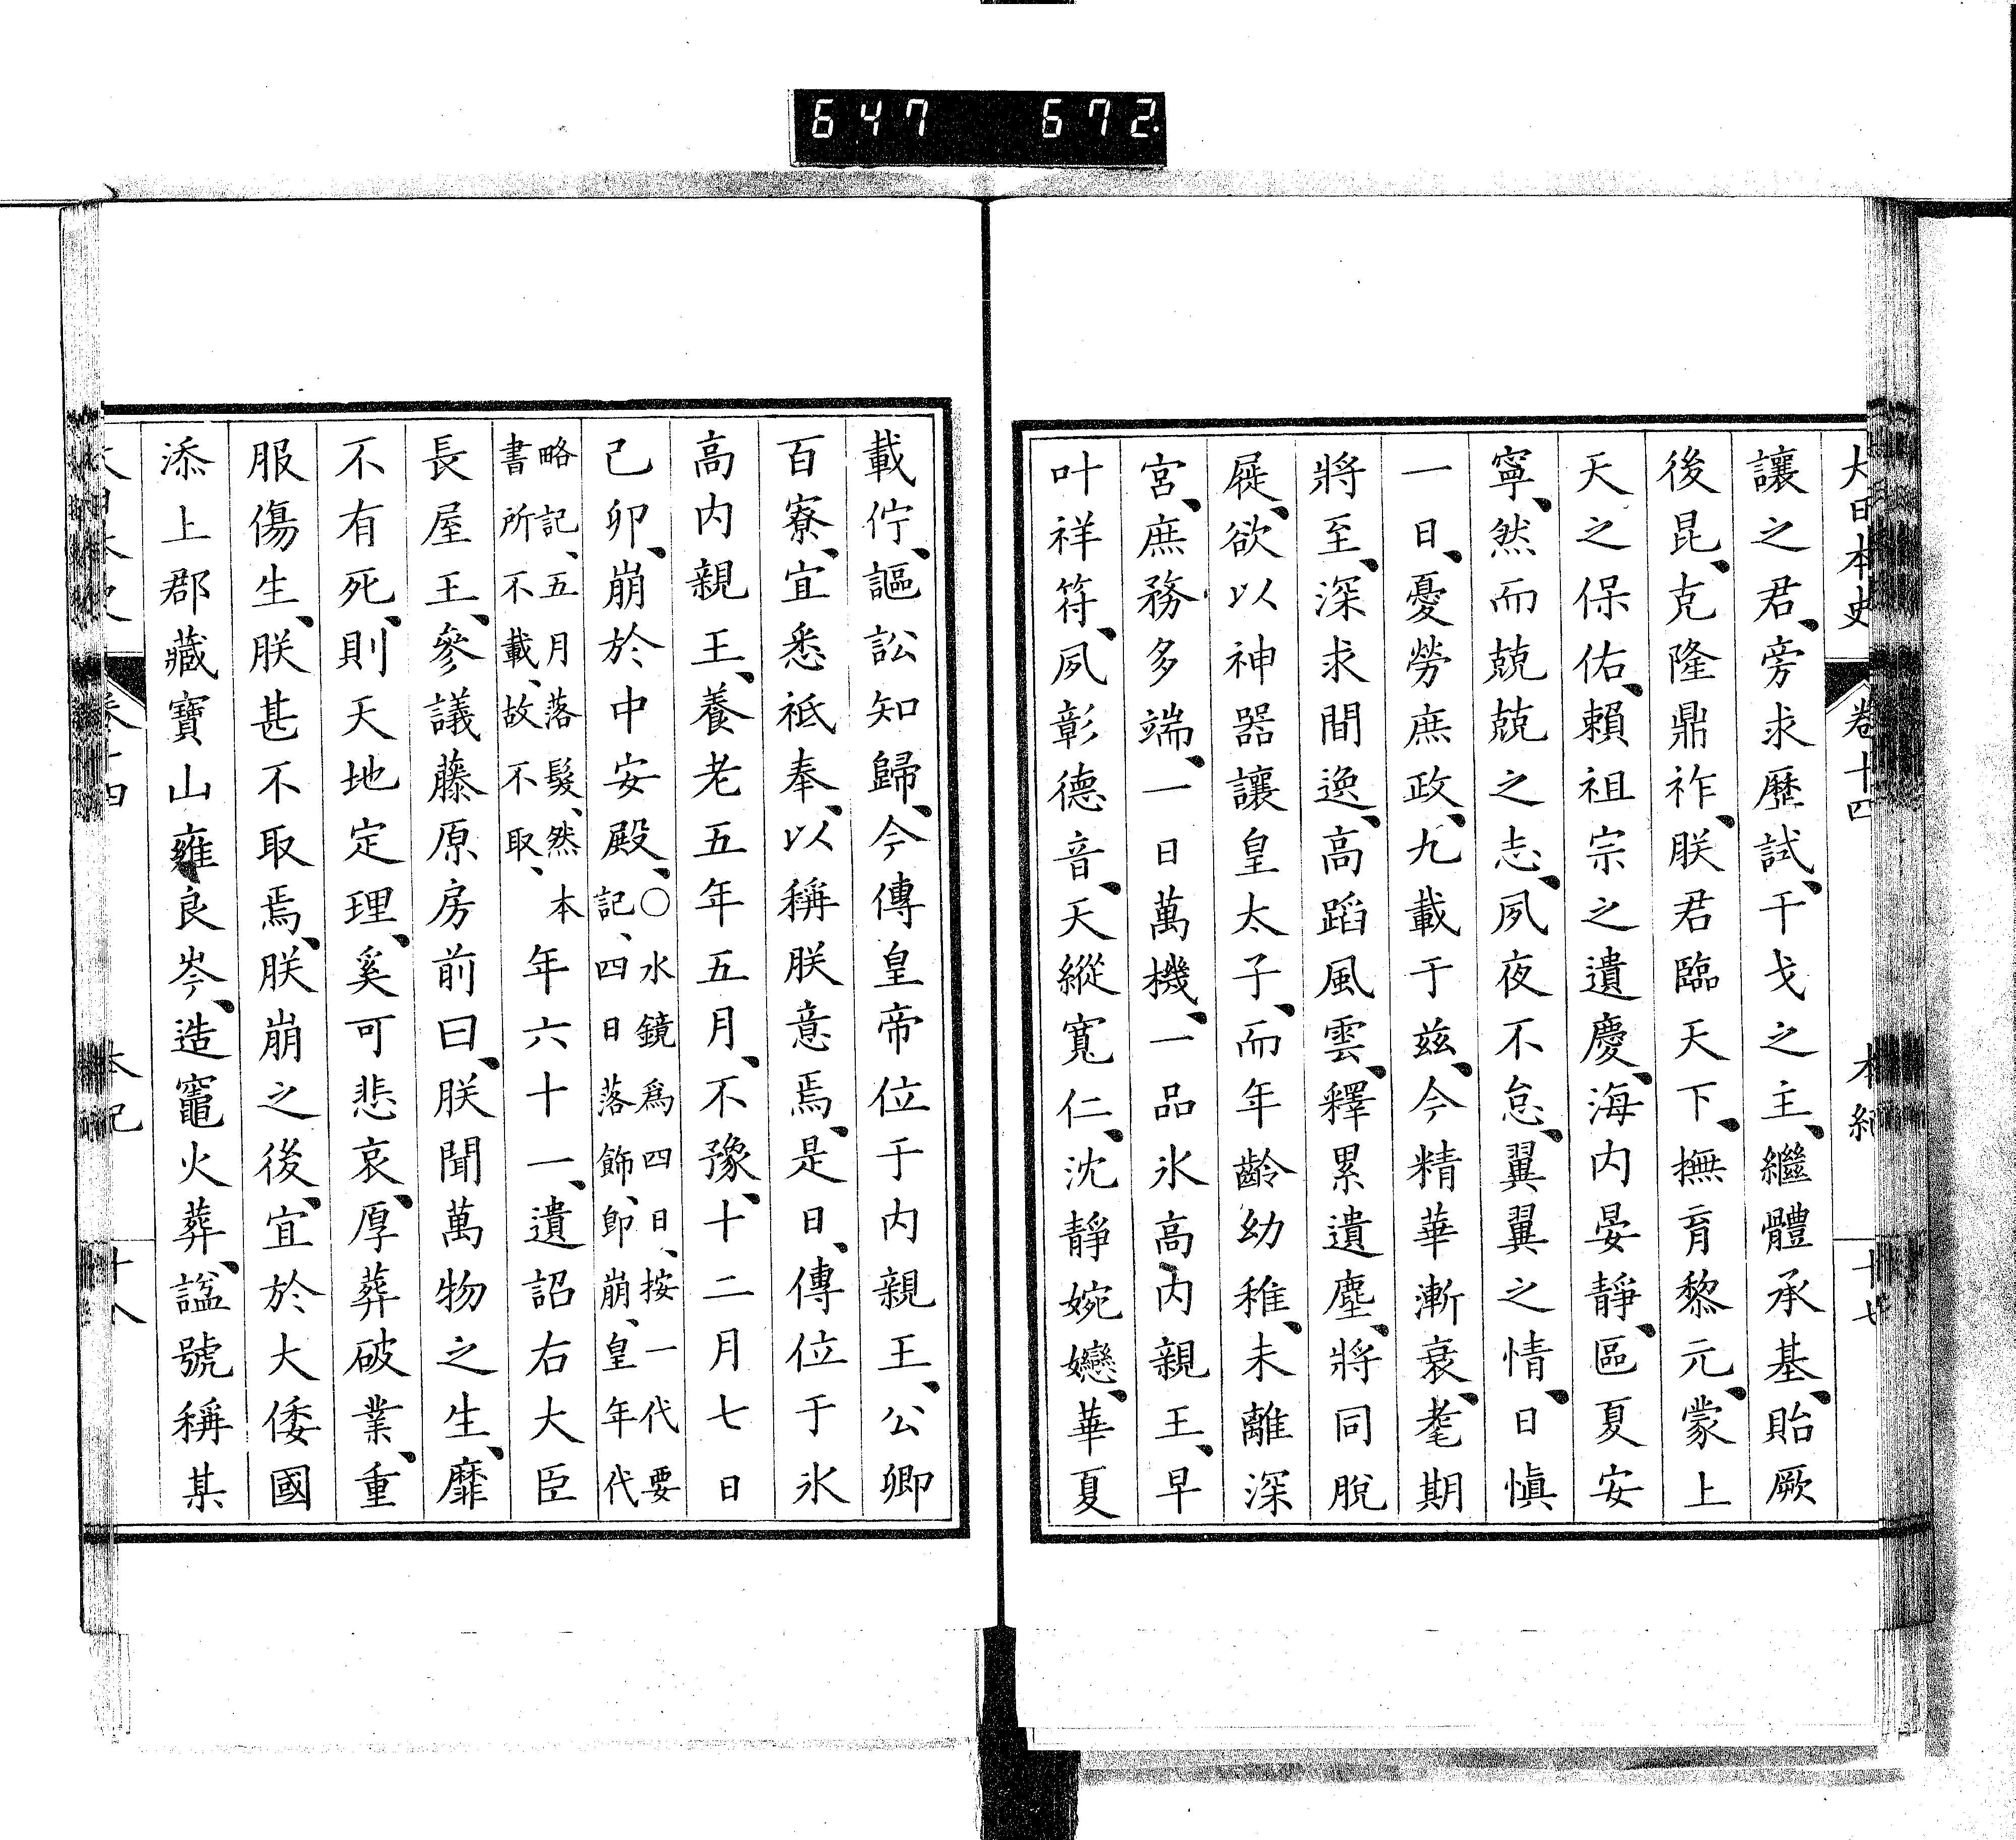 647 672
大日本史 卷十四 本紀 十七
讓之君、旁求歷試、干戈之主、繼體承基、貽厥
後昆、克隆鼎祚、朕君臨天下、撫育黎元、蒙上
天之保佑、賴祖宗之遺慶、海内晏靜、區夏安
寧、然而兢兢之志、夙夜不怠、翼翼之情、日愼
一日、憂勞庶政、九載于茲、今精華漸衰、耄期
將至、深求閒逸、高蹈風雲、釋累遺塵、將同脫
屣、欲以神器讓皇太子、而年齡幼稚、未離深
宮、庶務多端、一日萬機、一品氷高内親王、早
叶祥符、夙彰德音、天縱寬仁、沈靜婉孌、華夏
載佇、謳訟知歸、今傳皇帝位于内親王、公卿
百寮、宜悉祗奉、以稱朕意焉、是日、傳位于氷
高内親王、養老五年五月、不豫、十二月七日
己卯、崩於中安殿、〇水鏡爲四日、按一代要
記、四日落飾、卽崩、皇年代
略記、五月落髮、然本
書所不載、故不取、
年六十一、遺詔右大臣
長屋王、參議藤原房前曰、朕聞萬物之生、靡
不有死、則天地定理、奚可悲哀、厚葬破業、重
服傷生、朕甚不取焉、朕崩之後、宜於大倭國
添上郡藏寶山雍良岑、造竈火葬、謚號稱某
大日本史 卷十四 本紀 十八